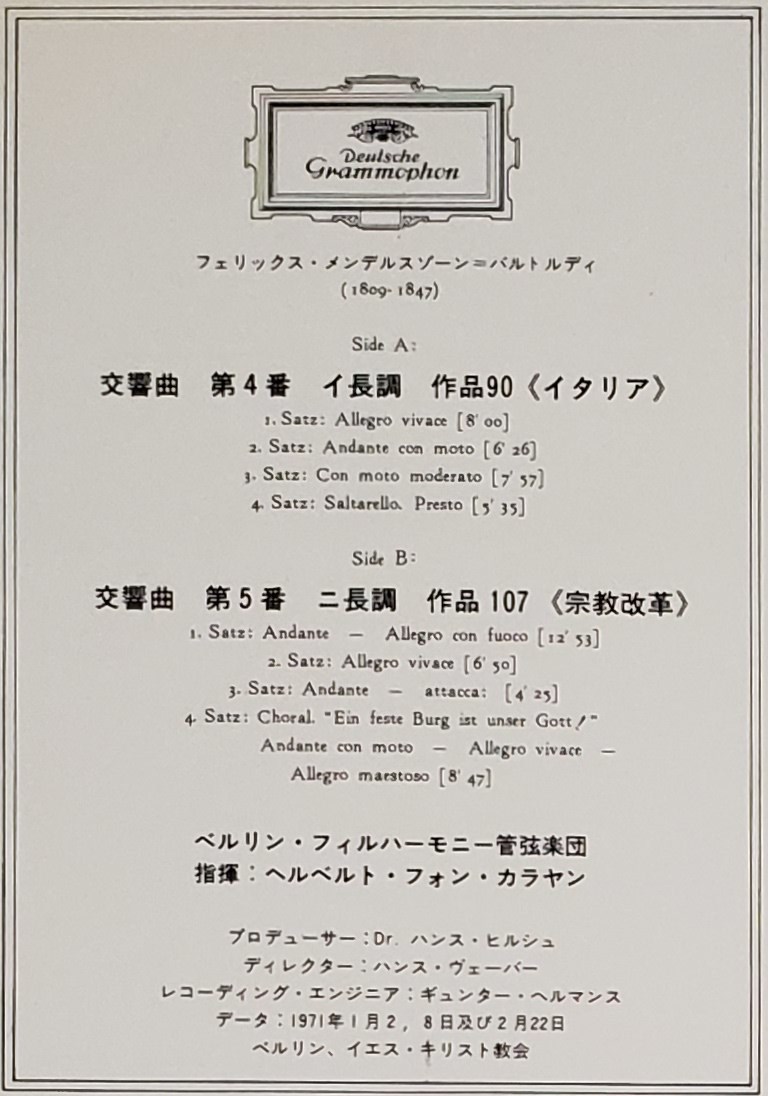 Deutsche
Grammophon
フェリックス・メンデルスゾーン=バルトルディ
(1809-1847)
Side A:
交響曲 第4番 イ長調 作品90《イタリア》
1. Satz: Allegro vivace [8' 00]
2. Satz: Andante con moto [6' 26]
3. Satz: Con moto moderato [7' 57]
4. Satz: Saltarello. Presto [5' 35]
Side B:
交響曲 第5番 ニ長調 作品107《宗教改革》
1. Satz: Andante — Allegro con fuoco [12' 53]
2. Satz: Allegro vivace [6' 50]
3. Satz: Andante — attacca: [4' 25]
4. Satz: Choral. "Ein feste Burg ist unser Gott!"
Andante con moto — Allegro vivace —
Allegro maestoso [8' 47]
ベルリン・フィルハーモニー管弦楽団
指揮:ヘルベルト・フォン・カラヤン
プロデューサー:Dr. ハンス・ヒルシュ
ディレクター:ハンス・ヴェーバー
レコーディング・エンジニア:ギュンター・ヘルマンス
データ:1971年1月2, 8日及び2月22日
ベルリン、イエス・キリスト教会